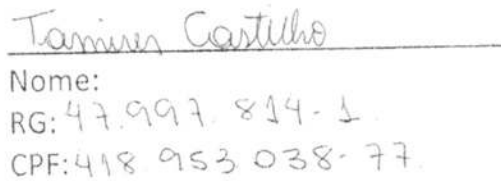 Tamires Castilho
Nome:
RG: 47.997.814-1
CPF: 418.953.038-77